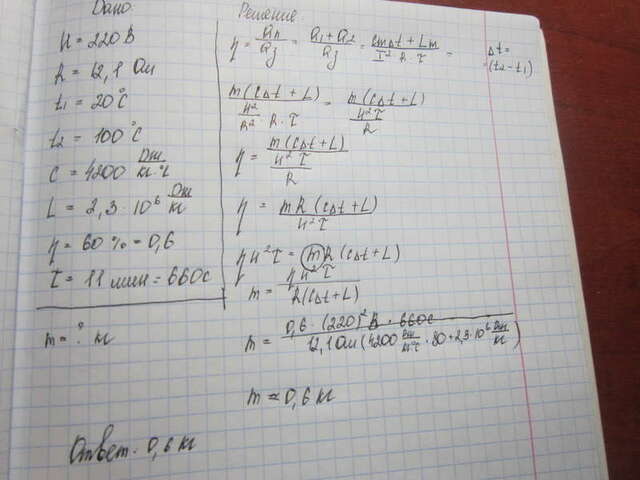 Дано
U = 220 В
R = 12,1 Ом
t₁ = 20°C
t₂ = 100°C
c = 4200 Дж/кг·°C
L = 2,3 · 10⁶ Дж/кг
η = 60 % = 0,6
τ = 11 мин = 660с
m = ? кг
Решение
η = Qп/Qз = (Q₁+Q₂)/Qз = (cmΔt + Lm)/(I² · R · τ) =
Δt =
=(t₂ - t₁)
m(cΔt + L)/((U²/R²) R · τ) = m(cΔt + L)/(U²τ/R)
η = m(cΔt + L)/(U²τ/R)
η = mR(cΔt + L)/(U²τ)
ηU²τ = mR(cΔt + L)
m = ηU²τ/(R(cΔt + L))
m = 0,6 · (220)² В · 660с/(12,1 Ом(4200 Дж/кг°C · 80 + 2,3 · 10⁶ Дж/кг))
m ≈ 0,6 кг
Ответ. 0,6 кг